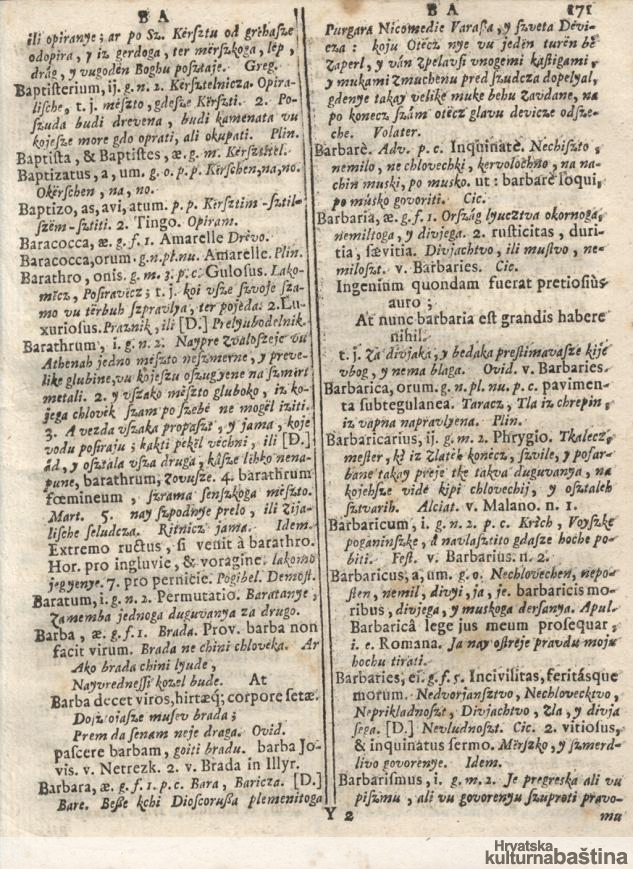 B A
ili opiranye; ar po Sz. Kërsztu od grëhaſze
odopira, y iz gerdoga, ter mërszkoga, lëp,
drág, y vugodën Boghu poſztaje. Greg.
Baptiſterium, ij. g. n. 2. Kërſztelnicza. Opira-
liſche, t. j. mëſzto, gdeſze Kërſzti. 2. Po-
ſzuda budi drevena, budi kamenata vu
kojeſze more gdo oprati, ali okupati. Plin.
Baptiſta, & Baptiſtes, æ. g. m. Kërſztitel.
Baptizatus, a, um. g. o. p. p. Kërſchen, na, no.
Okërſchen, na, no.
Baptizo, as, avi, atum. p. p. Kërſztim -ſztil-
ſzëm -ſztiti. 2. Tingo. Opiram.
Baracocca, æ. g. f. 1. Amarelle Drëvo.
Baracocca, orum. g. n. pl. nu. Amarelle. Plin.
Barathro, onis. g. m. 3. p. c. Guloſus. Lako-
mëcz, Poſiravëcz; t. j. koi vſze ſzvoje ſza-
mo vu tërbuh ſzpravlja, ter pojëda. 2. Lu-
xurioſus. Praznik, ili [D.] Prelyubodelnik.
Barathrum, i. g. n. 2. Naypre zvaloſzeje vu
Athenah jedno mëſzto neſzmerne, y preve-
like glubine, vu kojeſzu oſzugyene na ſzmërt
metali. 2. y vſzako mëſzto gluboko, iz ko-
jega chlovëk ſzam po ſzebë ne mogël iziti.
3. A vezda vſzaka propaſzt, y jama, koje
vodu poſiraju; kakti pëkël vëchni, ili [D.]
ád, y oſztala vſza druga, káſze lihko nena-
pune, barathrum, zovuſze. 4. barathrum
fœmineum, ſzrama ſenſzkoga mëſzto.
Mart. 5. nay ſzpodnye prelo, ili zija-
liſche ſeludcza. Ritnicz jama. Idem.
Extremo ructus, ſi venit à barathro.
Hor. pro ingluvie, & voragine. lakomo
jegyenye. 7. pro pernicie. Pogibel. Demoſt.
Baratum, i. g. n. 2. Permutatio. Baratanye,
zamemba jednoga duguvanya za drugo.
Barba, æ. g. f. 1. Brada. Prov. barba non
facit virum. Brada ne chini chlovëka. Ar
Ako brada chini lyude,
Nayvredneſſi kozel bude. At
Barba decet viros, hirtæq; corpore ſetæ.
Doſztojaſze muſev brada;
Prem da ſenam neje draga. Ovid.
paſcere barbam, goiti bradu. barba Jo-
vis. v. Netrezk. 2. v. Brada in Illyr.
Barbara, æ. g. f. 1. p. c. Bara, Baricza. [D.]
Bare. Beſſe kchi Dioſcoruſſa plemenitoga
B A 171
Purgara Nicomedie Varaſſa, y ſzveta Dëvi-
cza: koju Otëcz nye vu jedën turën bë
zaperl, y ván zpelavſi vnogemi kaſtigami,
y mukami zmuchenu pred ſzudcza dopelyal,
gdenye takay velike muke behu zavdane, na
po konecz ſzám otëcz glavu devicze odſze-
che. Volater.
Barbarè. Adv. p. c. Inquinatè. Nechiſzto,
nemilo, ne chlovechki, kervolochno, na na-
chin muski, po musko. ut: barbarè loqui,
po músko govoriti. Cic.
Barbaria, æ. g. f. 1. Orſzág lyucztva okornoga,
nemiltoga, y divjega. 2. ruſticitas, duri-
tia, ſævitia. Divjachtvo, ili muſtvo, ne-
miloſzt. v. Barbaries. Cic.
Ingenium quondam fuerat pretioſius
auro;
At nunc barbaria eſt grandis habere
nihil.
t. j. Za divjaka, y bedaka preſtimavaſze kije
vbog, y nema blaga. Ovid. v. Barbaries.
Barbarica, orum. g. n. pl. nu. p. c. pavimen-
ta ſubtegulanea. Taracz, Tla iz chrepin,
iz vapna napravlyena. Plin.
Barbaricarius, ij. g. m. 2. Phrygio. Tkalecz,
meſter, kì iz zlatëh konëcz, ſzvile, y pofar-
bane takay preje tke takva duguvanya, na
kojehſze vidë kipi chlovechij, y oſztaleh
ſztvarih. Alciat. v. Malano. n. 1.
Barbaricum, i. g. n. 2. p. c. Krich, Voyſzke
poganinſzke, á navlaſztito gdaſze hoche po-
biti. Feſt. v. Barbarius. n. 2.
Barbaricus, a, um. g. o. Nechlovechen, nepo-
ſten, nemil, divyi, ja, je. barbaricis mo-
ribus, divjega, y muskoga derſanya. Apul.
Barbaricâ lege jus meum proſequar,
i. e. Romana. Ja nay oſtreje pravdu moju
hochu tirati.
Barbaries, ei. g. f. 5. Incivilitas, feritásque
morum. Nedvorjanſztvo, Nechlovecktvo,
Neprikladnoſzt, Divjachtvo, Zla, y divja
ſega. [D.] Nevludnoſzt. Cic. 2. vitioſus,
& inquinatus ſermo. Mërſzko, y ſzmerd-
livo govorenye. Idem.
Barbariſmus, i, g. m. 2. Je pregreska ali vu
piſzmu, ali vu govorenyu ſzuproti pravo-
Y 2 mu
Hrvatska
kulturnabaština